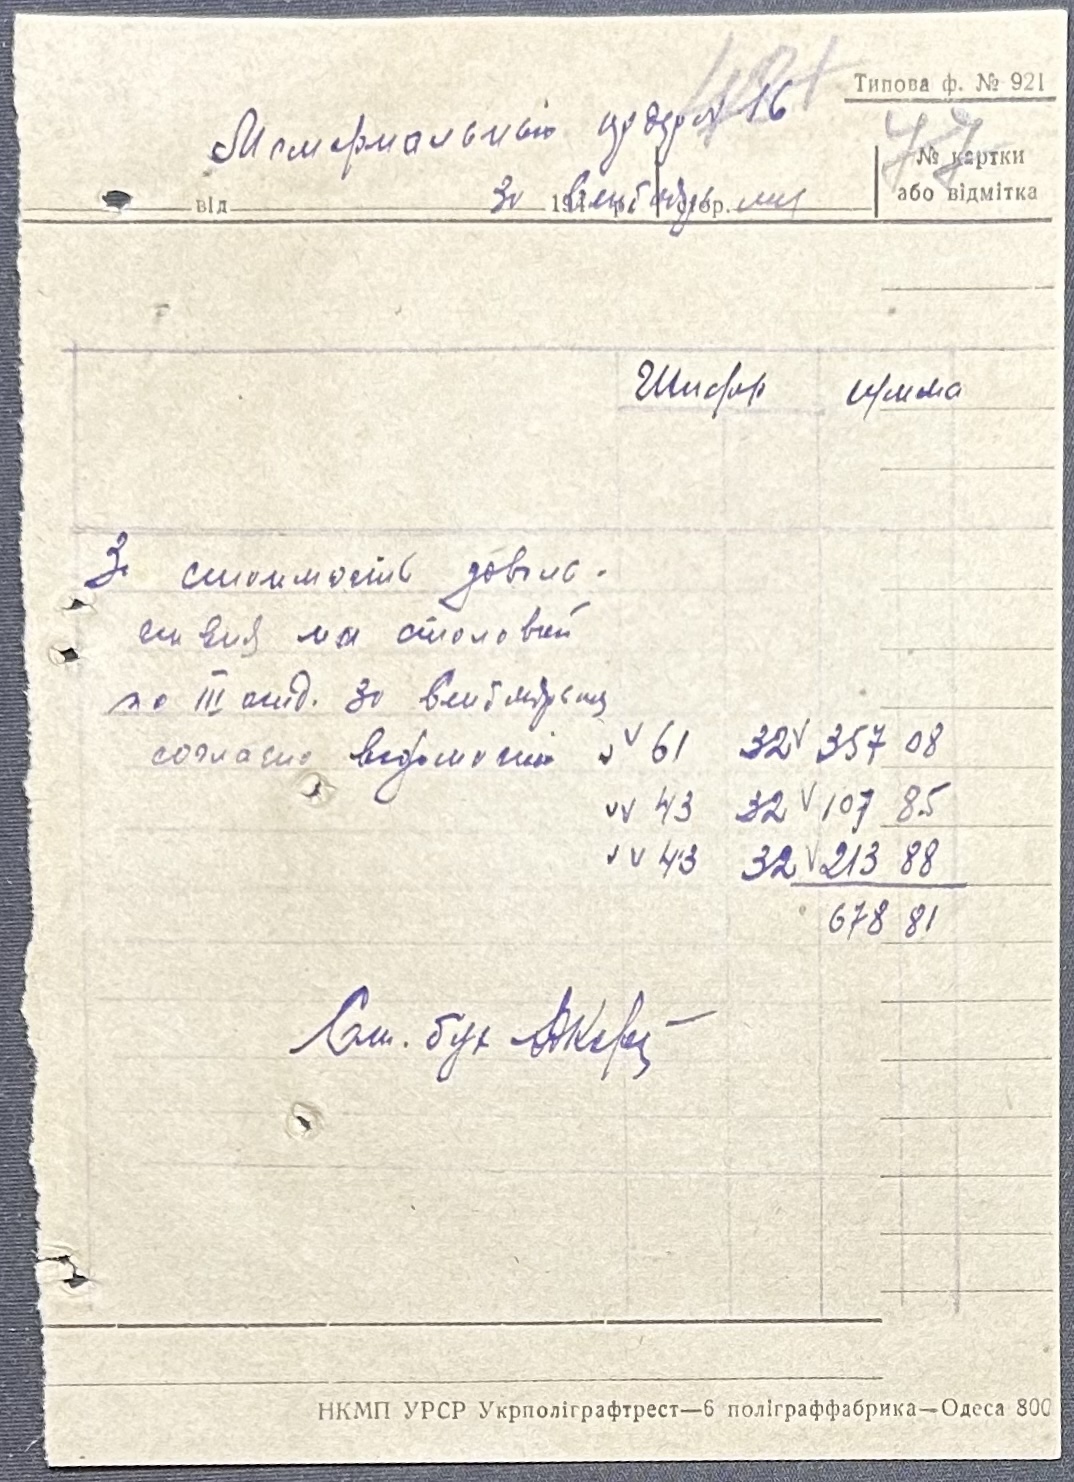 Типова ф. № 921
Мемориальный ордер № 16
77
№ картки
або відмітка
від 194 р. стор.
За сентябрь м-ц
Шифр сумма
За стоимость
столовой
по III за сентябрь м-ц
согласно ведомости 61 32 357 08
43 32 107 85
43 32 213 88
678 81
Ст. бух
НКМП УРСР Укрполіграфтрест—6 поліграффабрика—Одеса 800